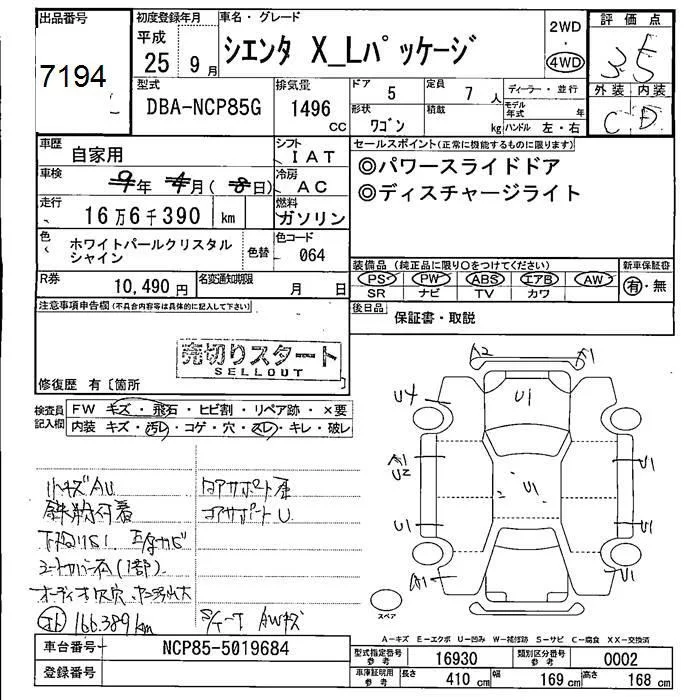 出品番号
7194
初度登録年月
平成
25 9月
車名・グレード
シエンタ X_Lパッケージ
2WD
・
4WD
評価点
3.5
外装 内装
C D
型式
DBA-NCP85G
排気量
1496
CC
ドア
5
定員
7 人
ディーラー・並行
モデル年式 年
形状
ワゴン
積載
kg
ハンドル 左・右
車歴
自家用
シフト
I AT
車検
9年 4月 (8日)
冷房
AC
走行
16万6千390 km
燃料
ガソリン
色
ホワイトパールクリスタル
シャイン
色替
色コード
064
R券
10,490円
名変通知期限
月 日
セールスポイント(正常に機能するものに限ります)
◎パワースライドドア
◎ディスチャージライト
装備品 (純正品に限り○をつけてください)
新車保証書
PS PW ABS エアB AW
SR ナビ TV カワ
有・無
後日品
保証書・取説
注意事項申告欄(不具合内容等は具体的に記入して下さい)
売切りスタート
SELLOUT
修復歴 有〔箇所
検査員
記入欄
FW キズ・飛石・ヒビ割・リペア跡・×要
内装 キズ・汚レ・コゲ・穴・スレ・キレ・破レ
小キズAU
下廻りS1
シートカバー有(1部)
オーディオ欠穴
166.389km
ドアサポートU
AWキズ
A2
A1
U4
U1
A1
U2
U1
U1
U1
U1
A1
スペア
A-キズ E-エクボ U-凹み W-補修跡 S-サビ C-腐食 XX-交換済
車台番号
NCP85-5019684
登録番号
型式指定番号
参考
16930
類別区分番号
参考
0002
車庫証明用
参考
長さ
410 cm
幅
169 cm
高さ
168 cm